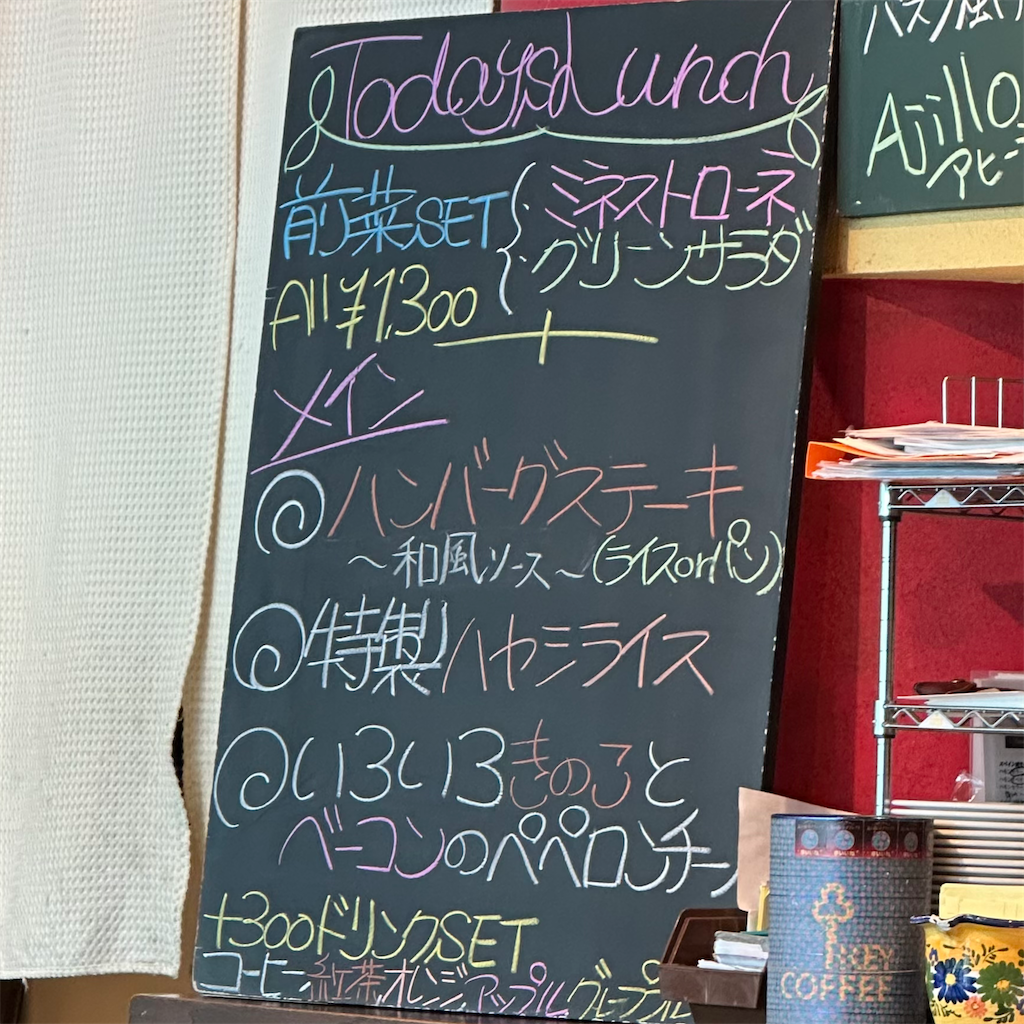 Today's Lunch
前菜SET
・ミネストローネ
・グリーンサラダ
All ¥1,300
メイン
ハンバーグステーキ
～和風ソース～(ライスorパン)
特製ハヤシライス
いろいろきのこと
ベーコンのペペロンチーノ
+300ドリンクSET
コーヒー 紅茶 オレンジ アップル グレープフル
Ajillo
アヒー
KEY
COFFEE